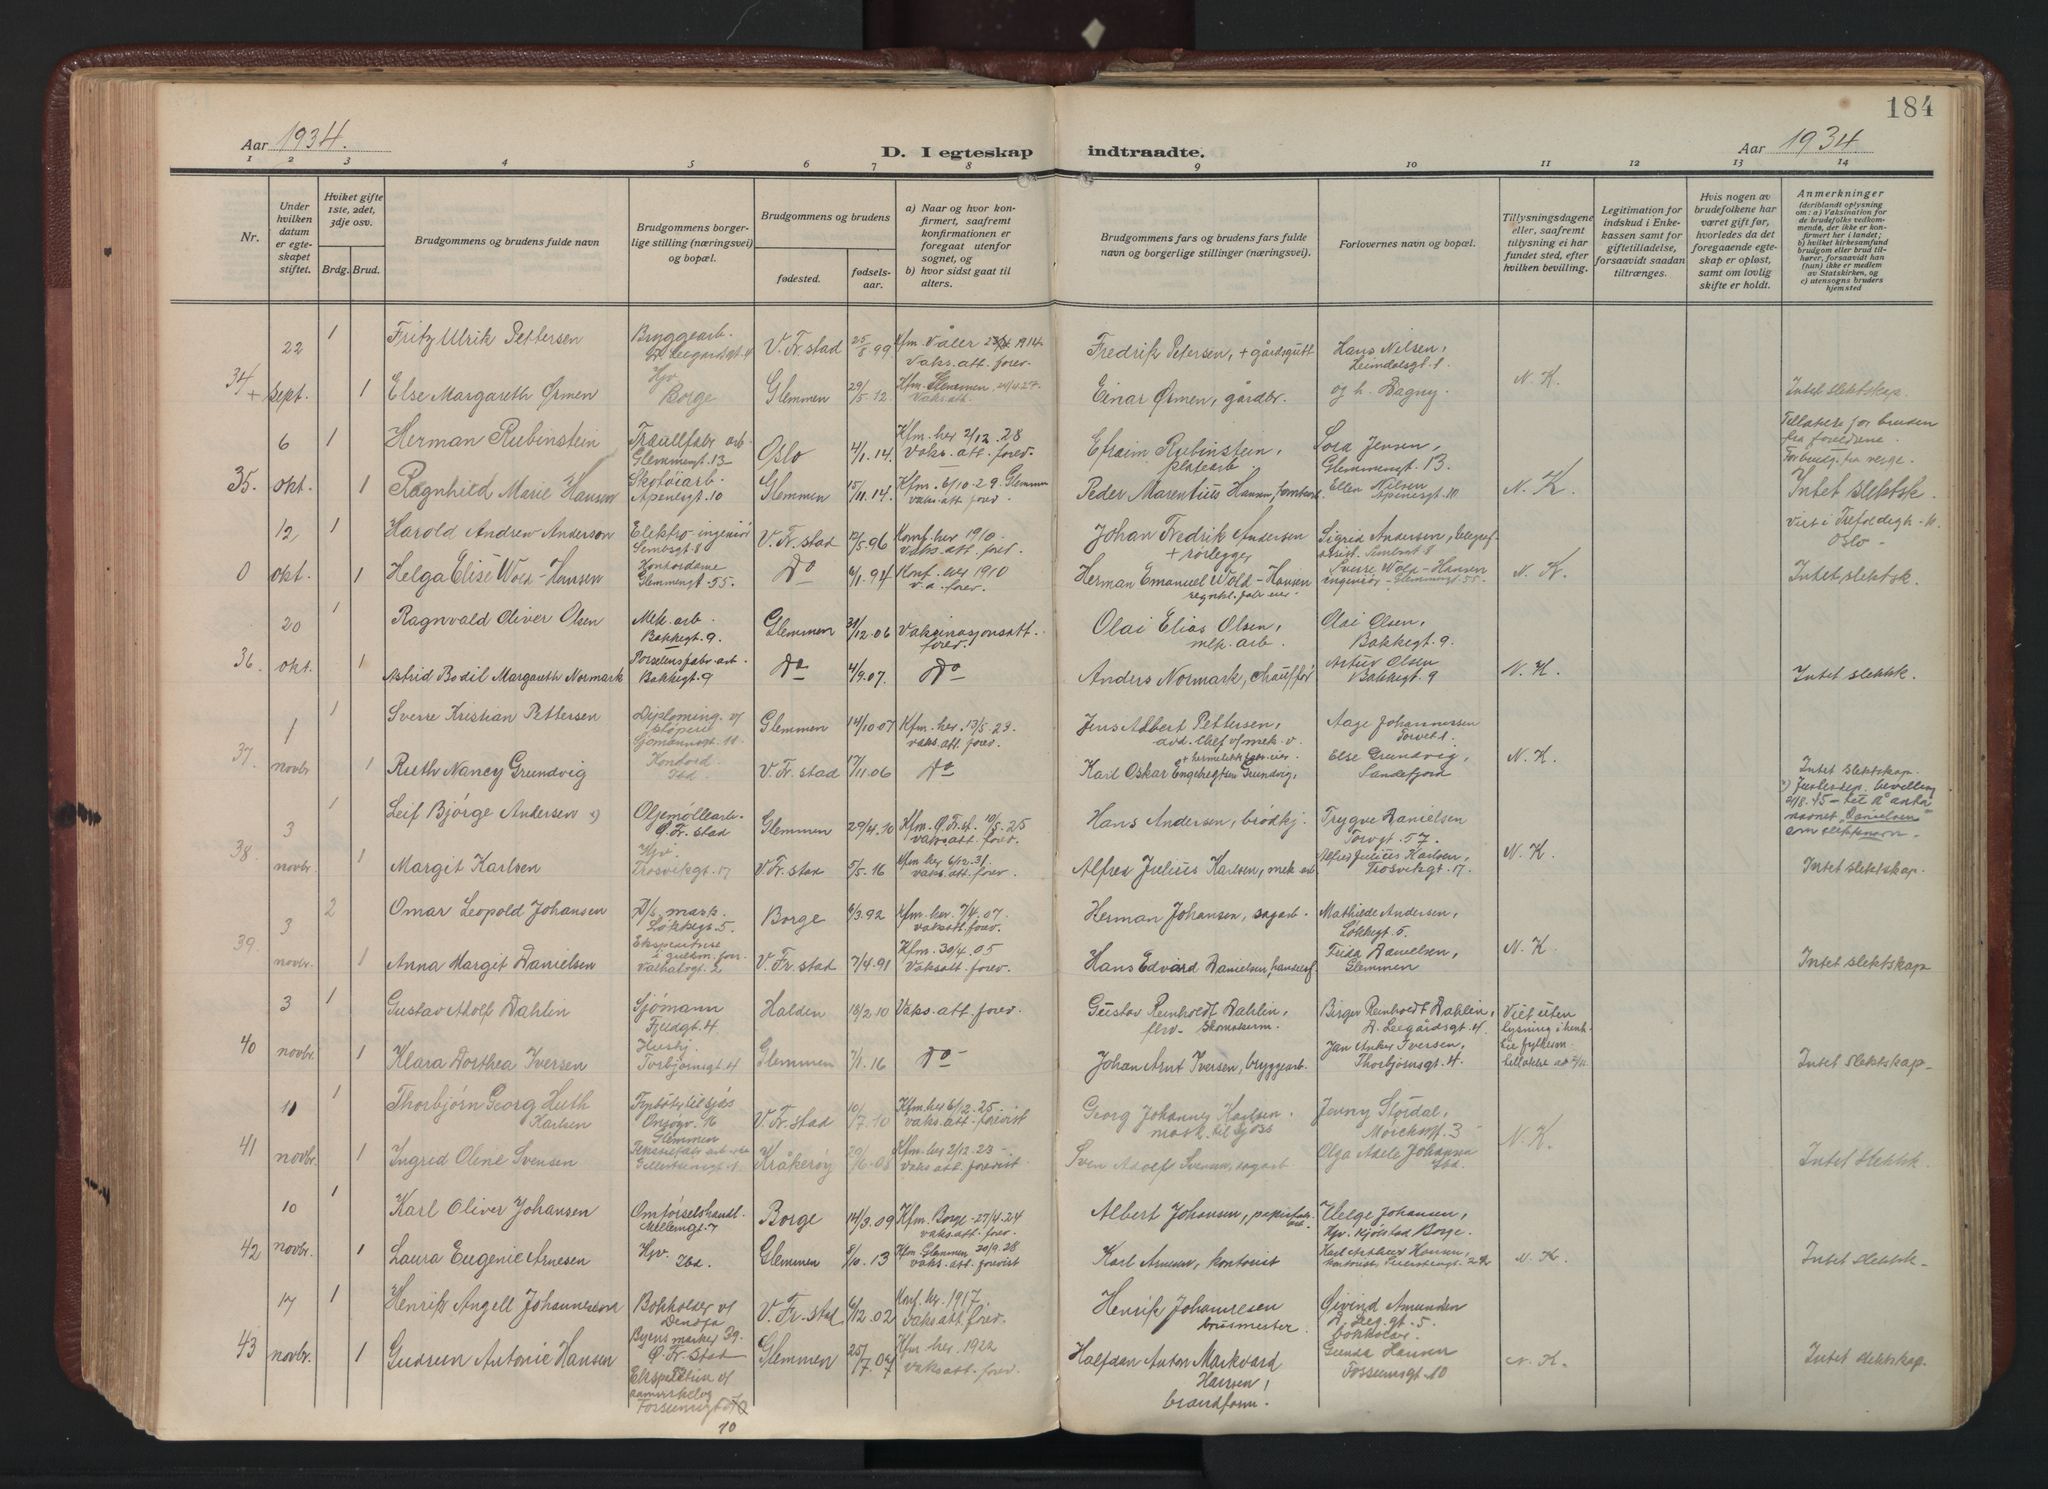 184
Aar 1934.
D. I egteskap indtraadte.
Aar 1934.
1 2 3 4 5 6 7 8 9 10 11 12 13 14
Nr.
Under hvilken datum er egteskapet stiftet.
Hviket gifte 1ste, 2det, 3dje osv.
Brdg. Brud.
Brudgommens og brudens fulde navn
Brudgommens borgerlige stilling (næringsvei) og bopæl.
Brudgommens og brudens
fødested.
fødselsaar.
a) Naar og hvor konfirmert, saafremt konfirmationen er foregaat utenfor sognet, og
b) hvor sidst gaat til alters.
Brudgommens fars og brudens fars fulde navn og borgerlige stillinger (næringsvei).
Forlovernes navn og bopæl.
Tillysningsdagene eller, saafremt tillysning ei har fundet sted, efter hvilken bevilling.
Legitimation for indskud i Enkekassen samt for giftetilladelse, forsaavidt saadan tiltrænges.
Hvis nogen av brudefolkene har været gift før, hvorledes da det foregaaende egteskap er opløst, samt om lovlig skifte er holdt.
Anmerkninger (deriblandt oplysning om: a) Vaksination for de brudefolks vedkommende, der ikke er konfirmert her i landet; b) hvilket kirkesamfund brudgom eller brud tilhører, forsaavidt han (hun) ikke er medlem av Statskirken, og c) utensogns bruders hjemsted
22 1 Fritz Ulrik Pettersen Bryggearb. V. Fr.stad 25/8 99 Kfm. Våler 1914 vaks. att. forev. Fredrik Petersen, + gårdsgutt Hans Nilsen, Leiridalsgt. 1.
34 + sept. 1 Else Margareth Ørmen Hjv. Borge Glemmen 29/5. 12 Kfm. Glemmen Vaks. att. Einar Ørmen, gårdbr. og h. Dagny. N. K. Intet slektskap.
6 1 Herman Rubinstein Træullfabr. arb. Glemmengt. 13 Oslo 4/1. 14. Kfm. her 2/12. 28 vaks. att. forev. Efraim Rubinstein, platearb. Lora Jensen, Glemmengt. 13. Tillatelse for bruden fra foreldrene.
35. okt. 1 Ragnhild Marie Hansen Skotøiarb. Apenesgt. 10 Glemmen 15/11. 14. Kfm. 6/10. 29. Glemmen vaks. att. forev. Peder Marentius Hansen, Ellen Nilsen Apenesgt. 10 N. K. Intet slektsk.
12 1 Harold Andrew Anderson Elektro-ingeniør Sembsgt. 8 V. Fr. stad 12/5. 96 Konf. her 1910. vaks. att. forev. Johan Fredrik Andersen + rørlegger Sigrid Andersen, Sembsgt 8 Viet i Trefoldigh. k. Oslo
0 okt. 1 Helga Elise Wold-Hansen Kontordame Glemmengt. 55. Do 6/1. 94 Konf. her 1910 v. a. forev. Herman Emanuel Wold-Hansen Sverre Wold-Hansen ingeniør - Glemmengt. 55. N. K. Intet slektsk.
20 1 Ragnvald Oliver Olsen Mek. arb. Bakkegt. 9. Glemmen 31/12. 06 Vaksinasjonsatt. forev. Olai Elias Olsen, mek. arb. Olai Olsen, Bakkegt. 9.
36. okt. 1 Astrid Bodil Margareth Normark Porselensfabr. arb. Bakkegt. 9 Do 4/9. 07. Do Anders Normark, chauffør Artur Olsen Bakkegt. 9 N. K. Intet slektsk.
1 1 Sverre Kristian Pettersen Diploming. v/ støperi Glemmen 14/10 07 Kfm. her 13/5. 23. vaks. att. forev. Jens Albert Pettersen, avd. chef v/ mek. v. Aage Johannessen Torvet 1
37. novbr. 1 Ruth Nancy Grundvig Kontord. Ibd. V. Fr. stad 17/11. 06 Do Karl Oskar Engebregtsen Grundvig, Else Grundvig, Sandefjord N. K. Intet slektskap.
3 1 Leif Bjørge Andersen x) Oljemøllearb. Ø. Fr. stad Glemmen 29/4. 10 Kfm. Ø. Fr.st. 10/5. 25 vaks. att. forev. Hans Andersen, brødkj. Trygve Danielsen Torvgt. 57. x) Justisdep. bevilling 21/8. 45 til å anta navnet "Danielsen" som slektsnavn.
38. novbr. 1 Margit Karlsen Hjv. Trosvikgt. 17 V. Fr. stad 5/5. 16 Kfm. her 6/12. 31. vaks. att. forev. Alfred Julius Karlsen, mek. arb. Alfred Julius Karlsen, Trosvikgt. 17. N. K. Intet slektskap.
3 2 Omar Leopold Johansen D/s. mask. Løkkegt. 5. Borge 9/3. 92 Kfm. her. 7/4. 07. vaks. att. forev. Herman Johansen, sagarb. Mathilde Andersen, Løkkegt. 5.
39. novbr. 1 Anna Margit Danielsen Ekspeditrise i gullsm. forr. Valhalsgt. 2 V. Fr. stad 7/4. 91 Kfm. 30/4. 05 Vaks att. forev. Hans Edvard Danielsen, Frida Danielsen, Glemmen N. K. Intet slektskap
3 1 Gustav Adolf Dahlin Sjømann Fjeldgt. 4 Halden 18/2. 10 Vaks. att. forev. Gustav Reinholdt Dahlin, Birger Reinholdt Dahlin, Viet uten lysning i henh.
40 novbr. 1 Klara Dorthea Iversen Hushj. Torbjørnsgt. 4 Glemmen 7/1. 16 Do Johan Arnt Iversen, bryggearb. Jan Anker Iversen, Thorbjørnsgt. 4. til fylkesm. tillatelse av Intet slektskap
11 1 Thorbjørn Georg Huth Karlsen Fyrbøter til sjøs V. Fr. Stad 10/7. 10 Kfm. her 6/2. 25. vaks. att. forevist Georg Johannes Karlsen. mask. til sjøss Jenny Stordal,
41 novbr. 1 Ingrid Oline Svensen Glemmen Kråkerøy Kfm. her 2/12. 23 - vaks. att. forevist. Sven Adolf Svensen, sagarb. Olga Adele Johanna Ibd. N. K. Intet slektsk.
10 1 Karl Oliver Johansen Omførselshandl. Møllengt. 7 Borge 14/3. 09 Kfm. Borge 27/4. 24 vaks. att. forev. Albert Johansen, papirfabr. arb. Helge Johansen, Hjv. Kjølstad Borge.
42 novbr. 1 Laura Eugenie Arnesen Hjv. Ibd. Glemmen 8/10. 13 Kfm. Glemmen 30/9. 28 vaks. att. forevist Karl Arnesen, kontorist Karl Arthur Hansen, N. K. Intet slektsk.
17 1 Henrik Angell Johannessen Bokholder v/ Denofa V. Fr. stad 6/12. 02 Konf. her 1917. vaks att. forev. Henrik Johannesen brusmester. Øivind Amundsen bokholder.
43 novbr. 1 Gudrun Antonie Hansen Byens marker 39. Ø. Fr. Stad Ekspeditrise v/ Glemmen 25/7. 07 Kfm her. 1922 Vaks att. forev. Halfdan Anton Markvard Hansen, brandform. Gunda Hansen Fossumsgt. 10 N. K. Intet slektskap.
10